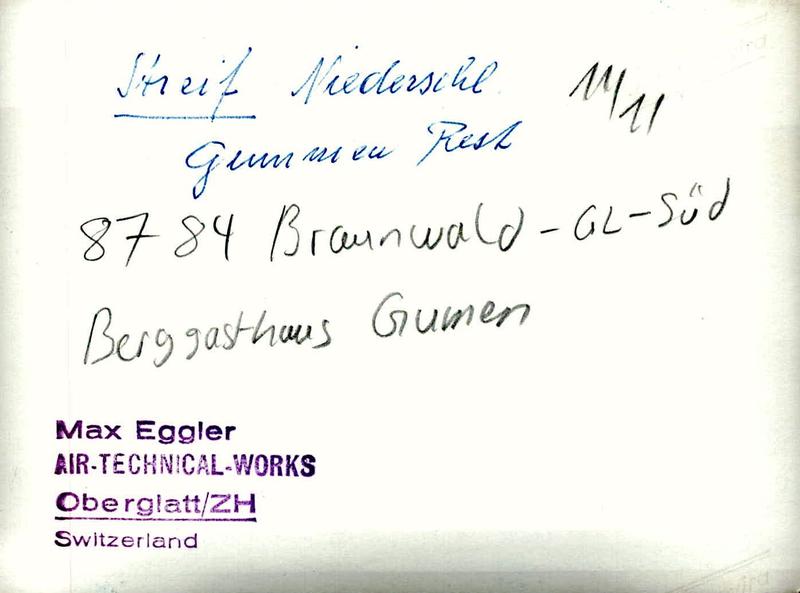 Streif Niederschl. 11/11
Gummen Rest
8784 Braunwald-GL-Süd
Berggasthaus Gumen
Max Eggler
AIR-TECHNICAL-WORKS
Oberglatt/ZH
Switzerland